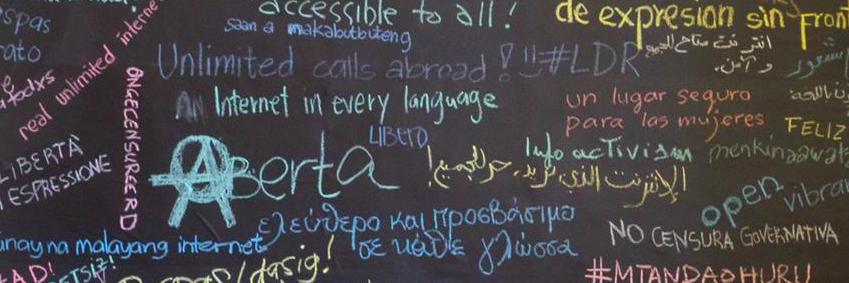 accessible to all!
de expresion sin front
espas
saan a makabutbuteng
rato
انترنت متاح للجميع
و آمن.
Unlimited calls abroad! #LDR
real unlimited internet
todxs
AN Internet in every language
un lugar seguro
para las mujeres
ONGECENSUREERD
LIBERO
FELIZ
LIBERTÀ
ESPRESSIONE
Aberta
Info activism
الإنترنت الذي نريد، حر للجميع!
open
vibra
ελεύθερο και προσβάσιμο
σε κάθε γλώσσα
NO CENSURA GOVERNATIVA
unay na malayang internet
dasig!
#MTANDAOHURU